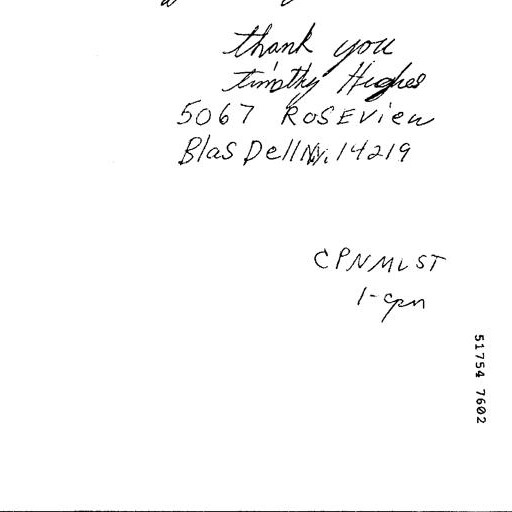 thank you
Timothy Hughes
5067 ROSEView
Blas Dell Ny. 14219
CPNMLST
1-cpn
51754 7602